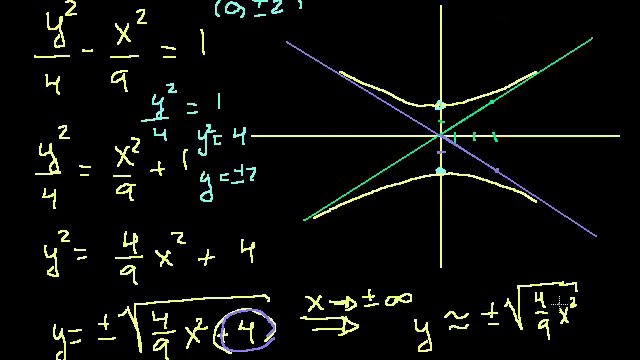 (0, ±2)
y²/4 - x²/9 = 1
y²/4 = 1
y² = 4
y = ±2
y²/4 = x²/9 + 1
y² = 4/9 x² + 4
y = ±√(4/9 x² + 4)
x → ±∞
⇒
y ≈ ±√(4/9 x²)